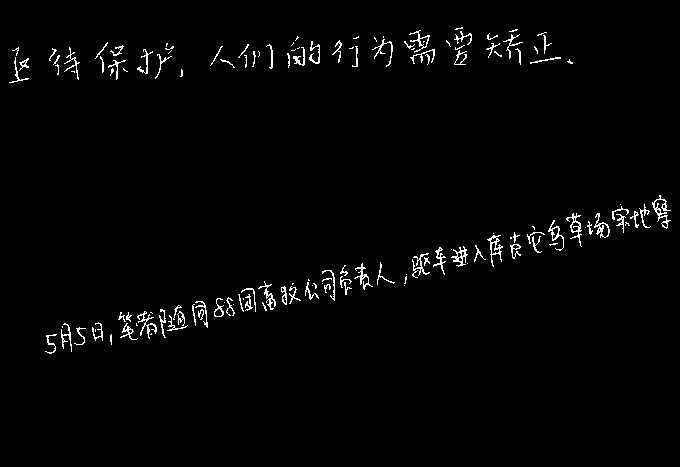 亟待保护,人们的行为需要矫正.
5月5日,笔者随同88团畜牧公司负责人,驱车进入库克它乌草场实地察